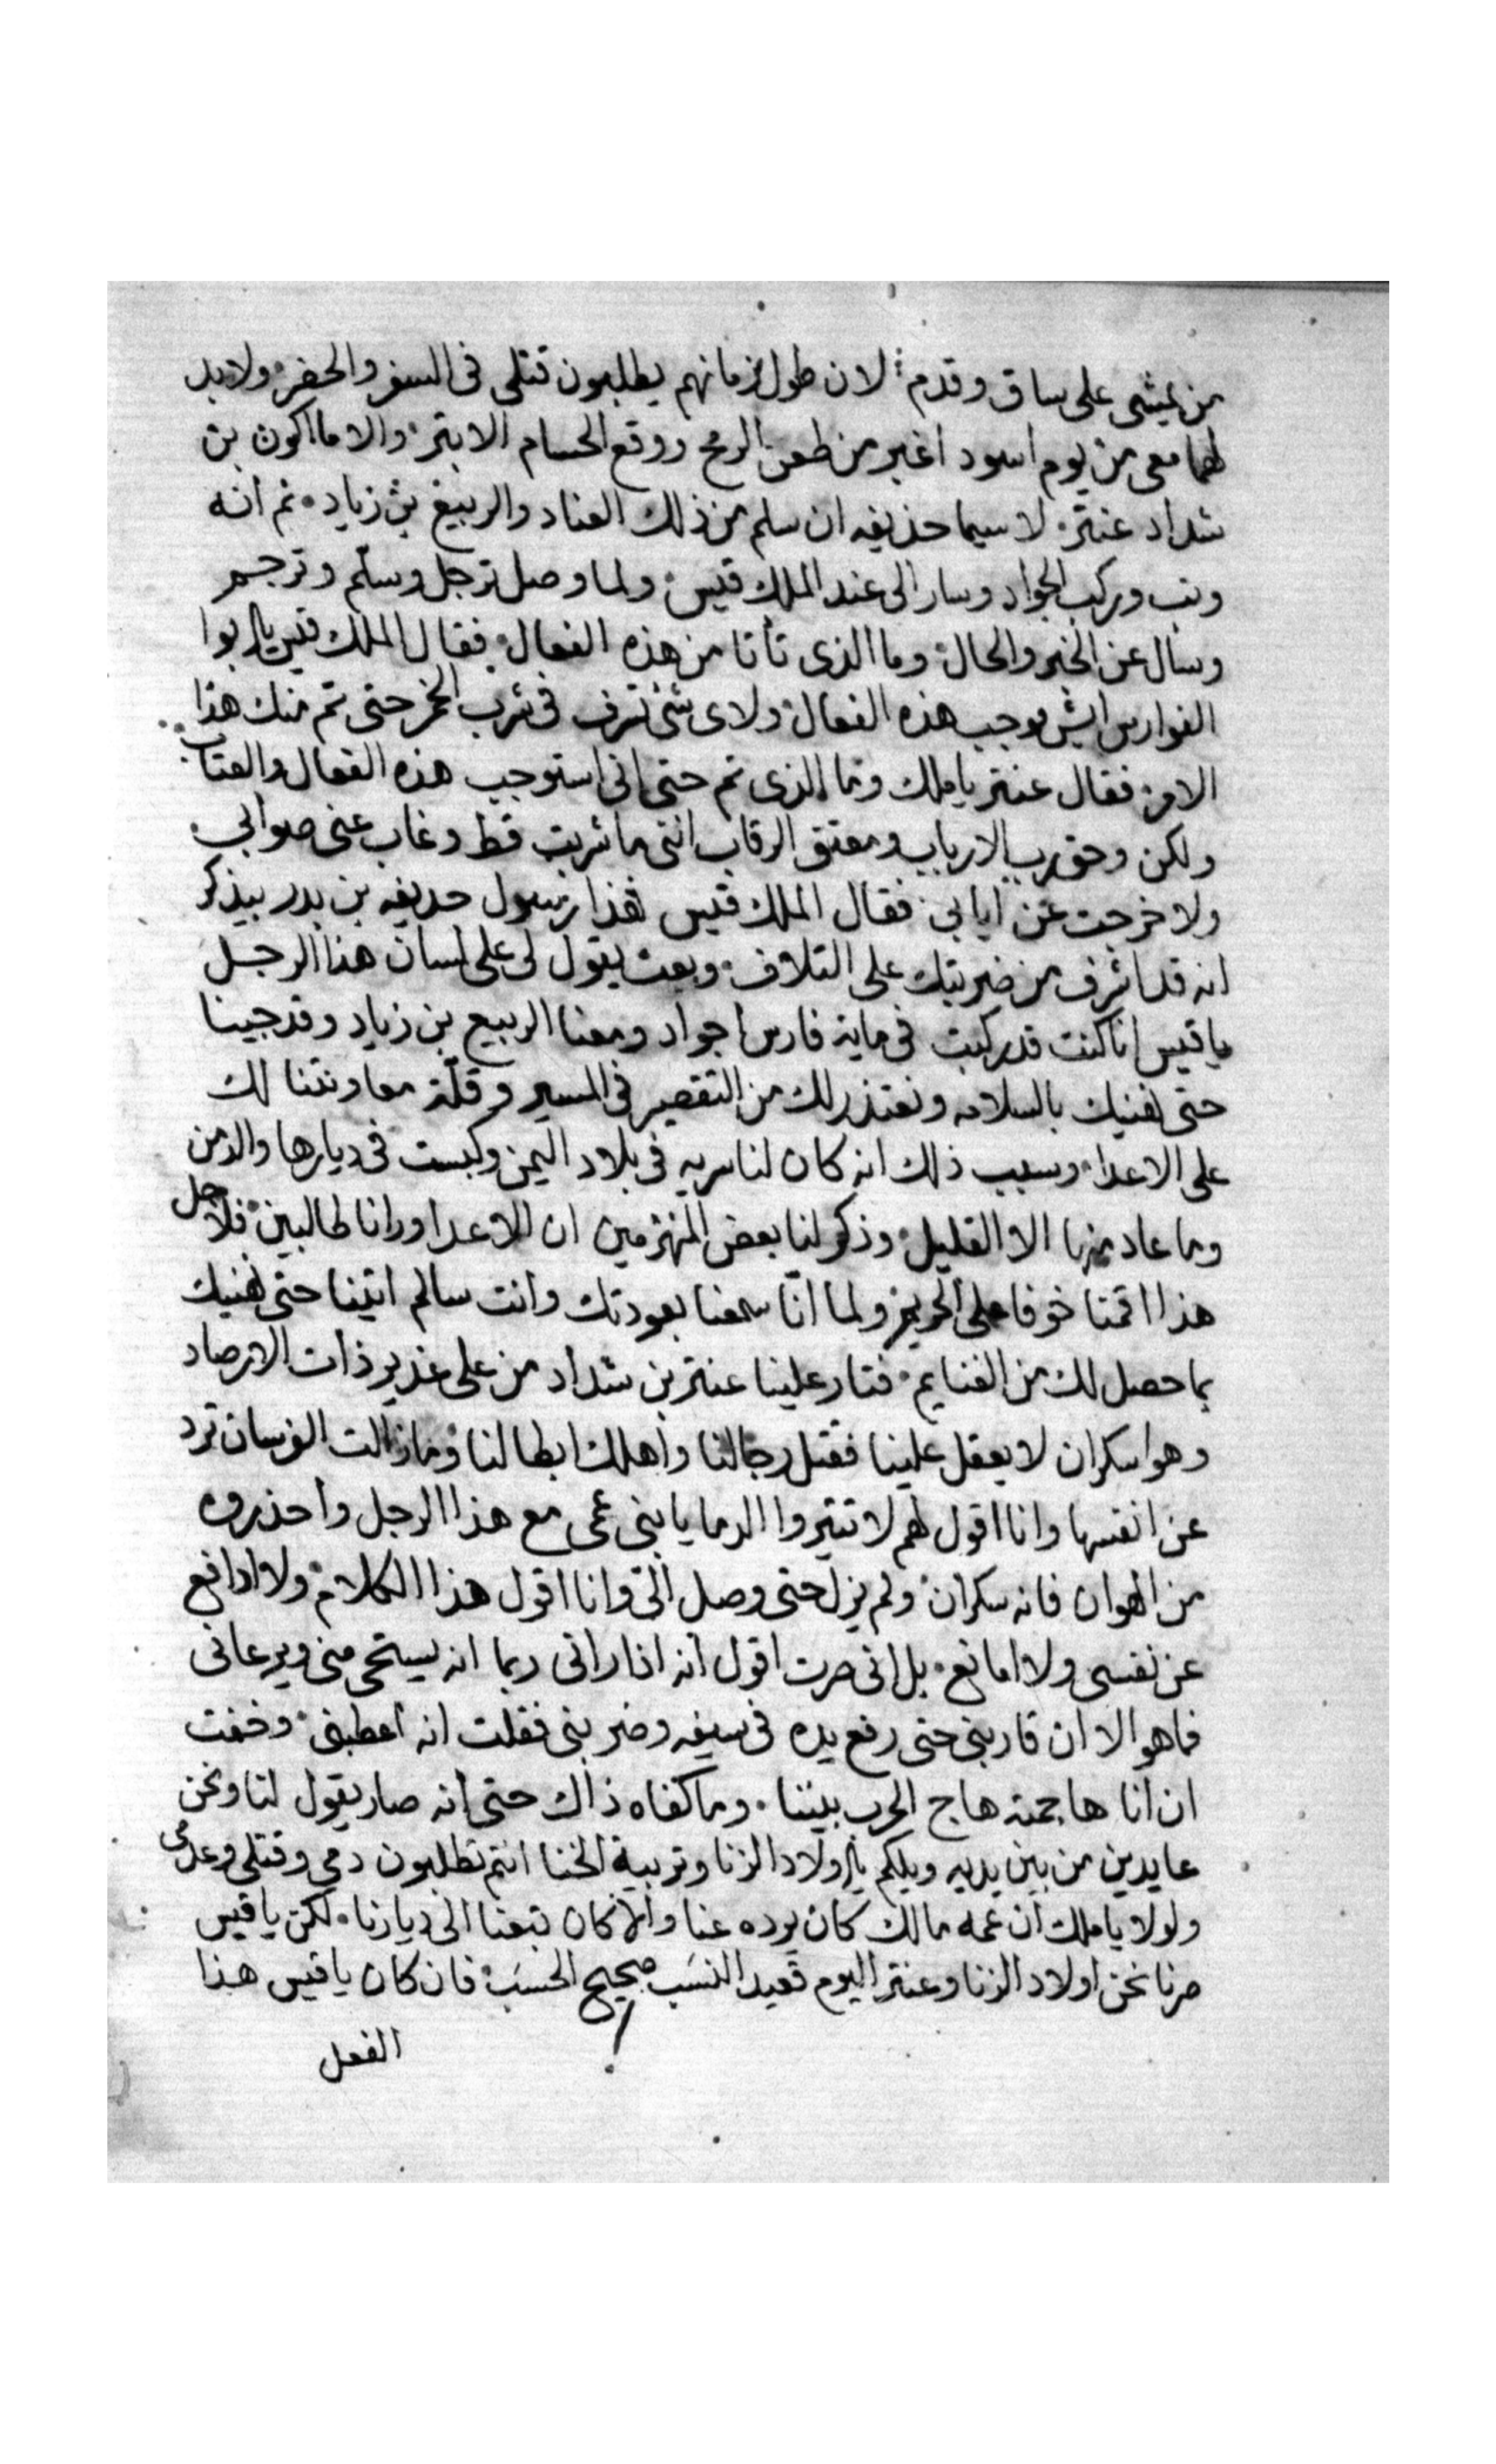 من يمشي على ساق وقدم لان طول زمانهم يطلبون قتلى فى السفر والحضر ولابد
لهما معى من يوم اسود اغبر من طعن الرمح ووقع الحسام الابتر والا ما اكون بن
شداد عنتر لا سيما حذيفه ان سلم من ذلك العناد والربيع بن زياد ثم انه
وثب وركب الجواد وسار الى عند الملك قيس ولما وصل ترجل وسلم وترجم
وسال عن الخبر والحال وما الذى تأتا من هذه الفعال فقال الملك قيس يا ابوا
الفوارس ايش يوجب هذه الفعال ولاى شئ تسرف فى شرب الخمر حتى تم منك هذا
الامر فقال عنتر يا ملك وما الذى تم حتى انى استوجب هذه الفعال والعتاب
ولكن وحق رب الارباب ومعتق الرقاب اننى ما شربت قط وغاب عنى صوابى
ولا خرجت عن ايابى فقال الملك قيس هذا رسول حديفه بن بدر بيذكر
انه قد اشرف من ضربتك على التلاف وبعث يقول لى على لسان هذا الرجل
يا قيس انا كنت قد ركبت فى ماية فارس اجواد ومعنا الربيع بن زياد وقد جينا
حتى نهنيك بالسلامه ونعتذر لك من التقصير فى المسير وقلّة معاونتنا لك
على الاعدا وسبب ذلك انه كان لنا سريه فى بلاد اليمن وكبست فى ديارها والدمن
وما عاد منها الا القليل وذكر لنا بعض المنهزمين ان الاعدا ورانا طالبين فلاجل
هذا اقمنا خوفا على الحريم ولما انّا سمعنا بعودتك وانت سالم اتينا حتى نهنيك
بما حصل لك من الغنايم فتار علينا عنتر بن شداد من على غدير ذات الارصاد
وهو سكران لا يعقل علينا فقتل رجالنا واهلك ابطالنا وما زالت الفرسان ترد
عن انفسها وانا اقول لهم لا تثيروا الدما يا بنى عمى مع هذا الرجل واحذروه
من الهوان فانه سكران ولم يزل حتى وصل الىّ وانا اقول هذا الكلام ولا ادافع
عن نفسى ولا امانع بل انى صرت اقول انه اذا رانى ربما انه يستحى منى ويرعانى
فما هو الا ان قاربنى حتى رفع يده فى سيفه وضربنى فقلت انه اعطبنى وخفت
ان انا هاجمته هاج الحرب بيننا وما كفاه ذاك حتى انه صار يقول لنا ونحن
عايدين من بين يديه ويلكم يا اولاد الزنا وتربية الخنا انتم تطلبون دمي وقتلى وعدمى
ولولا يا ملك ان عمه مالك كان يرده عنا والا كان تبعنا الى ديارنا لكن يا قيس
صرنا نحن اولاد الزنا وعنتر اليوم قعيد النسب صحيح الحسب فان كان يا قيس هذا
الفعل